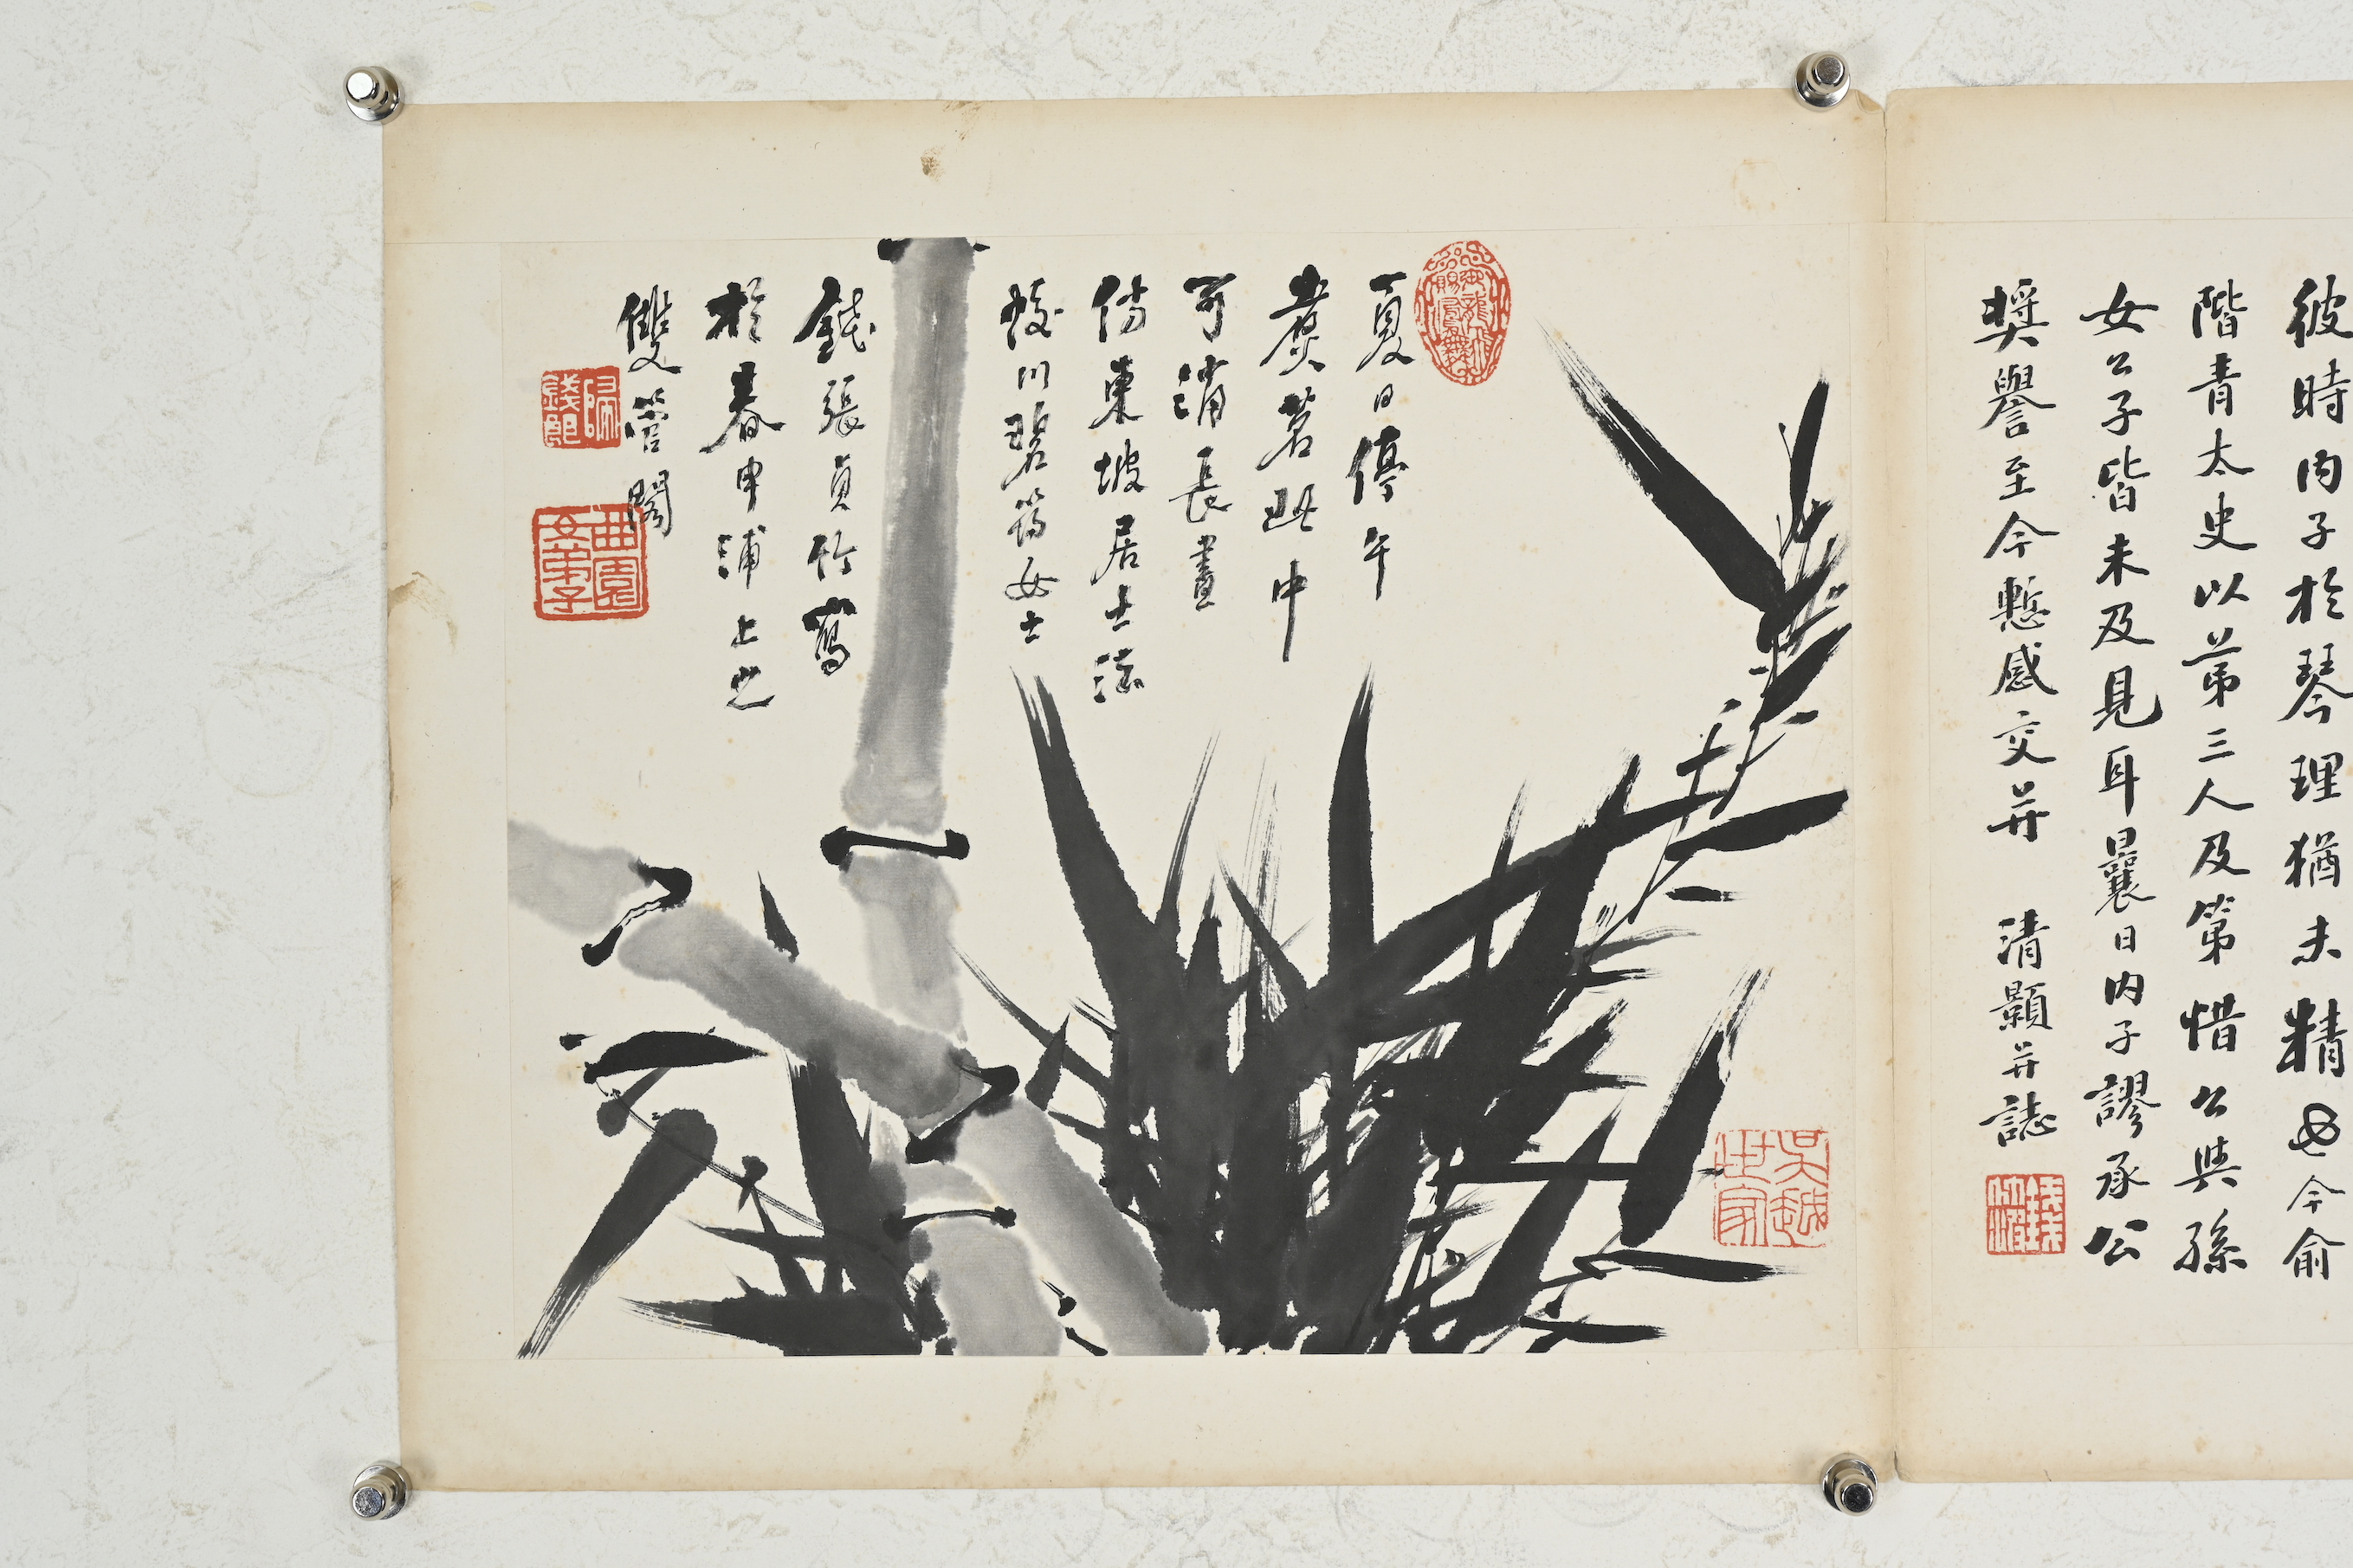 彼時內子於琴理猶未精也今俞
階青太史以第三人及第惜公與孫
女公子皆未及見耳曩日內子謬承公
獎譽至今慙感交并 清顥并誌
夏日停午
煑茗此中
可消長晝
仿東坡居士法
蛟川碧筠女士
錢張貞竹寫
於春申浦上之
雙管閣
歸錢郎
曲園女弟子
吳越世家